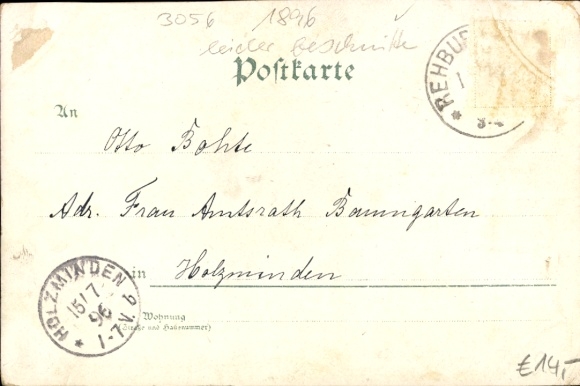 3056 1896
leider beschnitten
Postkarte
REHBU
An
Otto Bohte
Adr. Frau Amtsrath Baumgarten
in Holzminden
HOLZMINDEN
15/7
96
1-7 V.
Wohnung
(Straße und Hausnummer)
€14,-